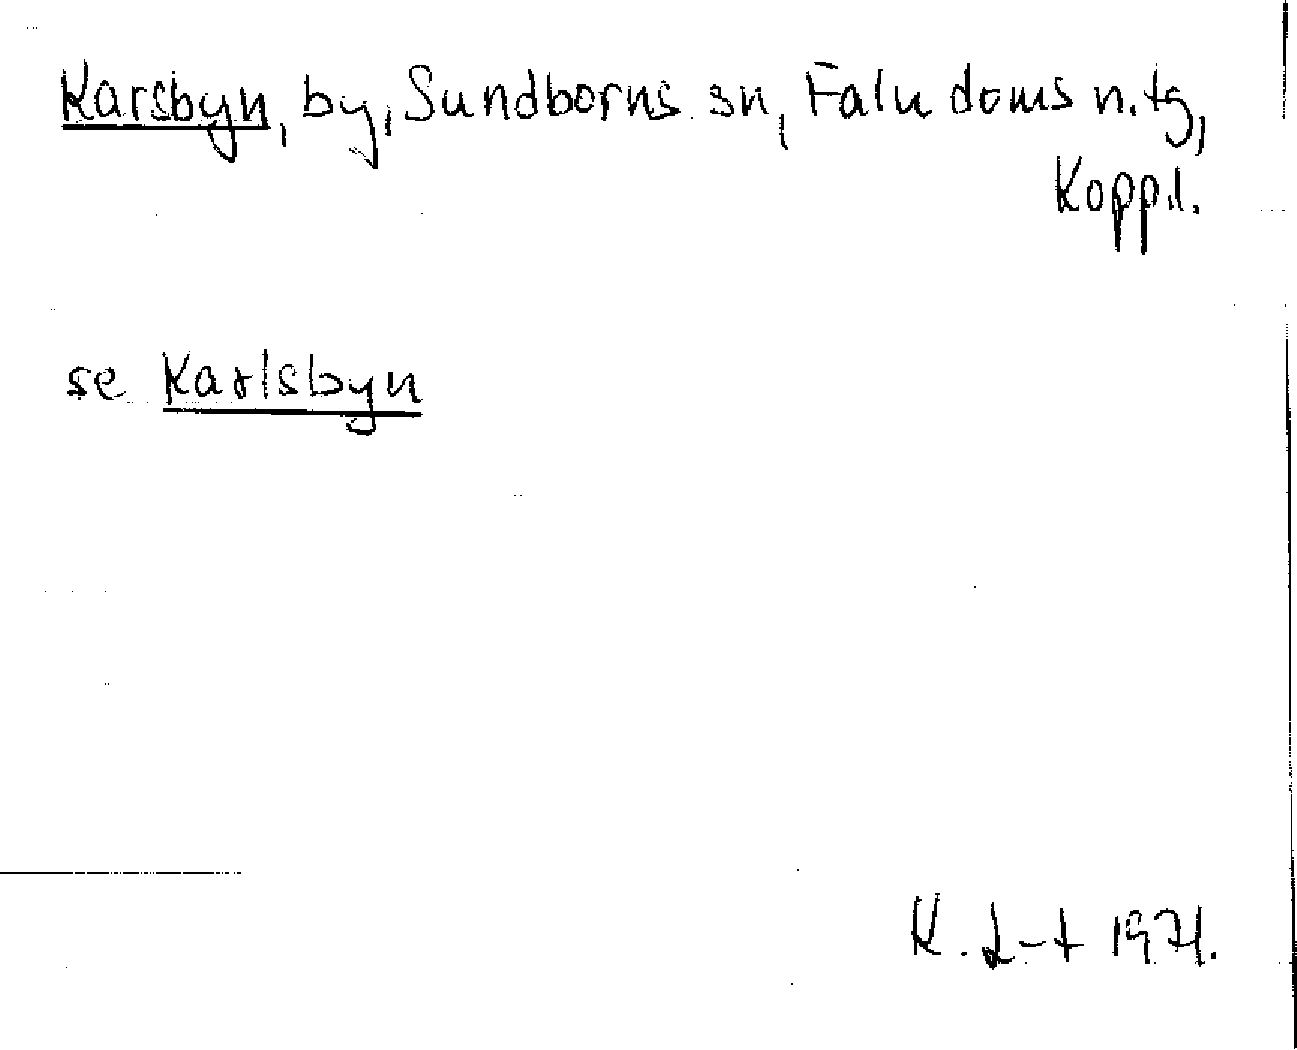 Karsbyn, by, Sundborns sn, Falu doms n. tg,
Kopp.l.
se Karlsbyn
K. L-t 1971.